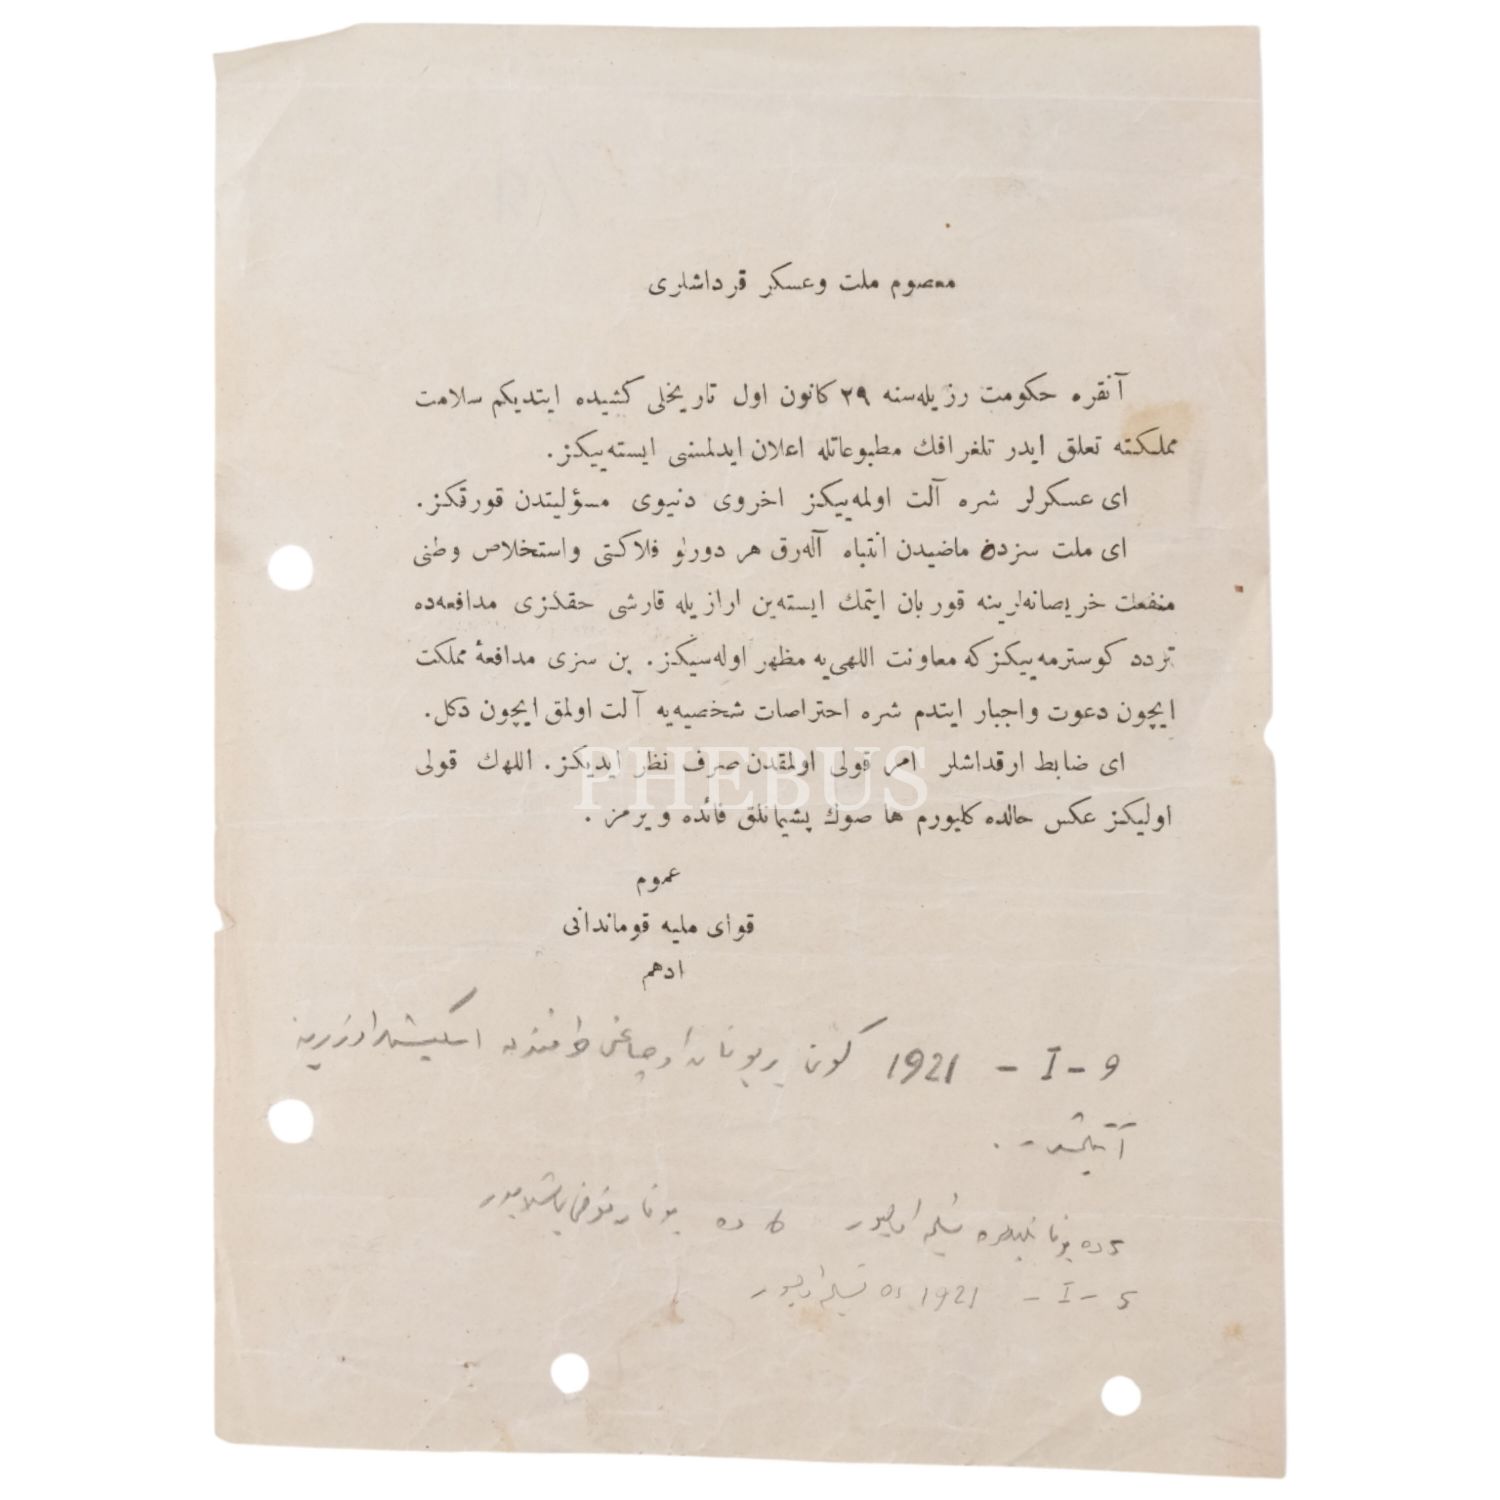 معصوم ملت وعسكر قرداشلری
آنقره حكومت رزیله‌سنه ٢٩ كانون اول تاریخلی كشیده ایتدیكم سلامت
مملكته تعلق ایدر تلغرافك مطبوعاتله اعلان ایدلمسنی ایسته‌ییكز.
ای عسكرلر شره آلت اولمه‌ییكز اخروی دنیوی مسؤلیتدن قورقكز.
ای ملت سزده ماضیدن انتباه آله‌رق هر دورلو فلاكتی واستخلاص وطنی
منفعت خریصانه‌لرینه قوربان ایتمك ایسته‌ین ارازیله قارشی حقكزی مدافعه‌ده
تردد كوسترمه‌ییكز كه معاونت اللهی‌یه مظهر اوله‌سیكز. بن سزی مدافعهٔ مملكت
ایچون دعوت واجبار ایتدم شره احتراصات شخصیه‌یه آلت اولمق ایچون دكل.
ای ضابط ارقداشلر امر قولی اولمقدن صرف نظر ایدیكز. اللهك قولی
اولیكز عكس حالده كلیورم ها صوك پشیمانلق فائده ویرمز .
PHEBUS
عموم
قوای ملیه قوماندانی
ادهم
9 - I - 1921 كونی بر یونان طرفندن اسكیشهر اوزرینه
آتیلمشدر .
5 ده یونانلیلره تسلیم اولیور 6 ده یونان
5 - I - 1921 ده تسلیم اولیور